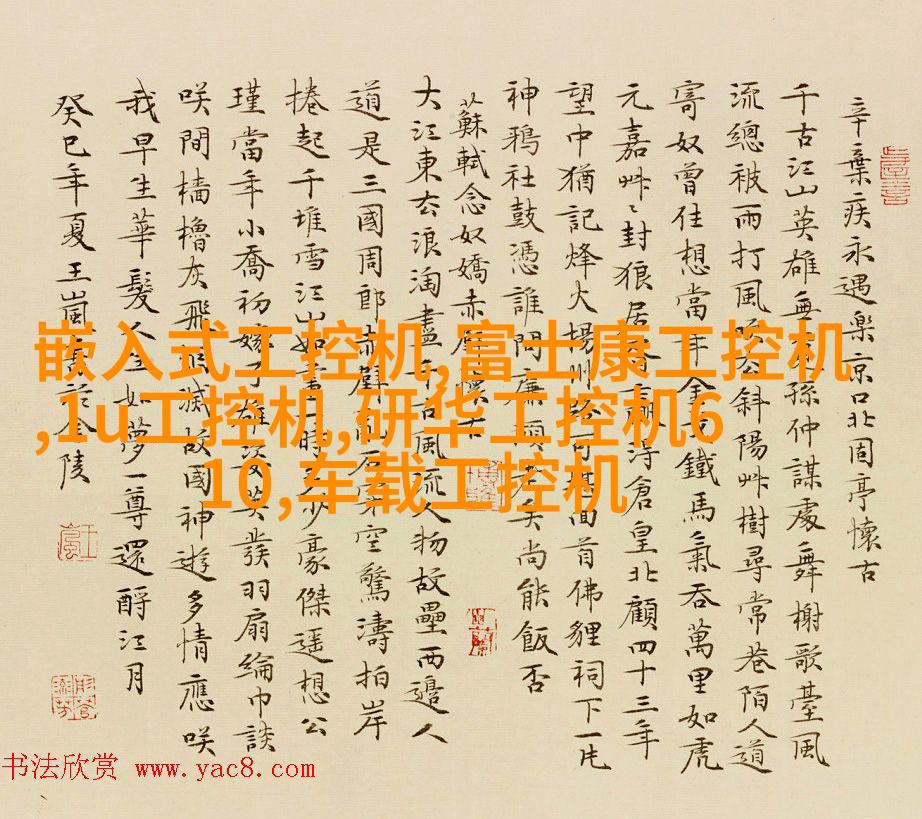 辛棄疾永遇樂京口北固亭懷古
千古江山英雄無覓孫仲謀處舞榭歌臺風
流總被雨打風吹去斜陽艸樹尋常巷陌人道
寄奴曾住想當年金戈鐵馬氣吞萬里如虎
元嘉艸〻封狼居胥贏得倉皇北顧四十三年
望中猶記烽火揚州路可堪回首佛貍祠下一片
神鴉社鼓憑誰問廉頗老矣尚能飯否
蘇軾念奴嬌赤壁懷古
大江東去浪淘盡千古風流人物故壘西邊人
道是三國周郎赤壁亂石穿空驚濤拍岸
捲起千堆雪江山如畫一時多少豪傑遙想公
瑾當年小喬初嫁了雄姿英發羽扇綸巾談
咲間檣櫓灰飛煙滅故國神遊多情應咲
我早生華髮人生如夢一尊還酹江月
癸巳年夏王嵐書於金陵
嵌入式工控机,富士康工控机
,1u工控机,,研华工控机6
10,车载工控机
书法欣赏 www.yac8.com